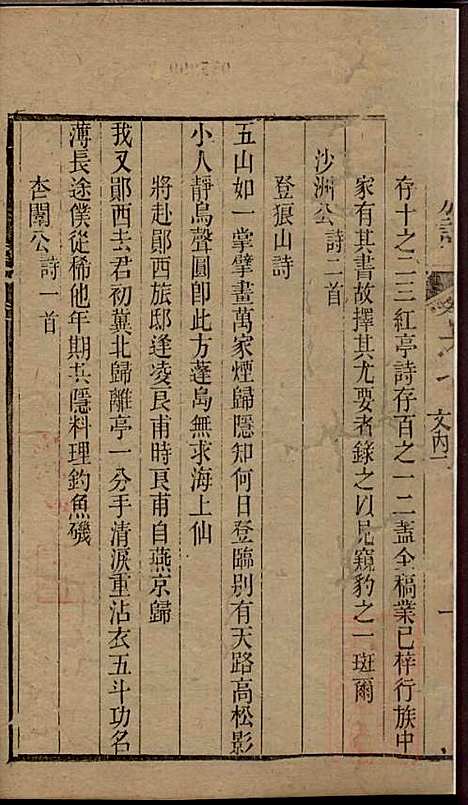 存十之二三紅亭詩存百之一二蓋全稿業已梓行族中
家有其書故擇其尤要者錄之以見窺豹之一斑爾
沙洲公詩二首
登狼山詩
五山如一掌擘畫萬家煙歸隱知何日登臨别有天路高松影
小人靜鳥聲圓卽此方蓬島無求海上仙
將赴鄖西旅邸逢凌艮甫時艮甫自燕京歸
我又鄖西去君初冀北歸離亭一分手清淚重沾衣五斗功名
薄長途僕從稀他年期共隱料理釣魚磯
杏闈公詩一首